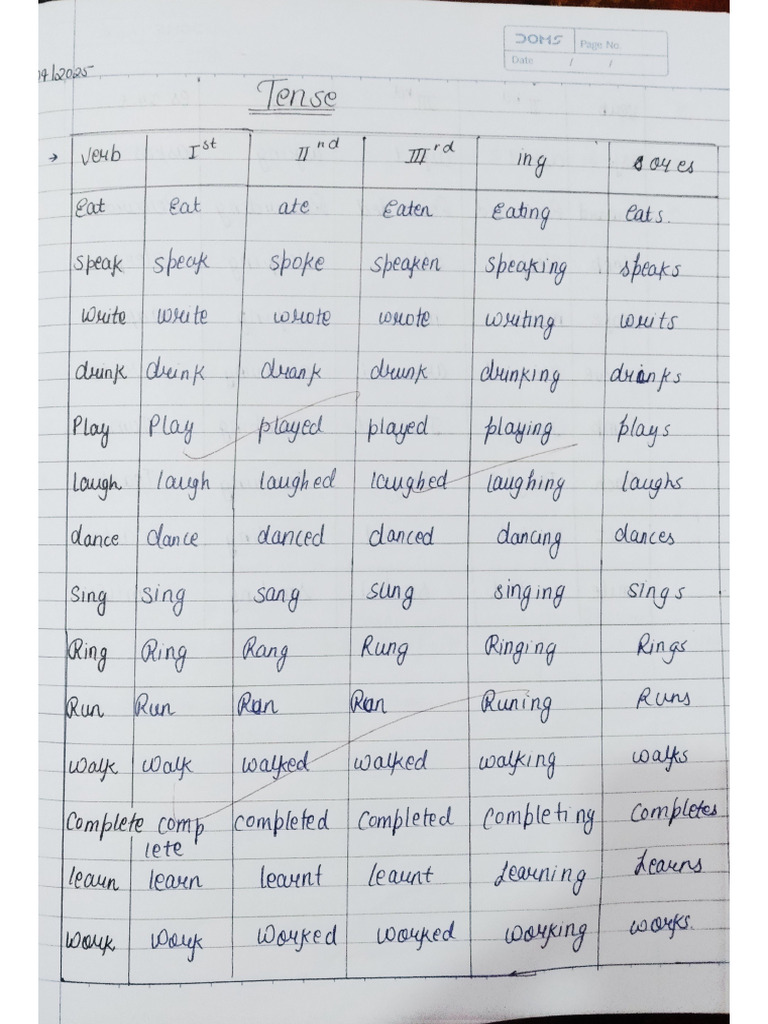 DOMS Page No.
Date / /
04/2025
Tense
→ Verb Ist IInd IIIrd ing s or es
Eat Eat ate Eaten Eating Eats.
Speak speak spoke speaken speaking speaks
Write write wrote wrote writing writs
drink drink drank drunk drinking drinks
Play Play played played playing plays
laugh laugh laughed laughed laughing laughs
dance dance danced danced dancing dances
Sing sing sang sung singing sings
Ring Ring Rang Rung Ringing Rings
Run Run Ran Ran Runing Runs
Walk walk walked walked walking walks
Complete comp completed completed completing completes
lete
learn learn learnt learnt learning learns
Work work worked worked working works.